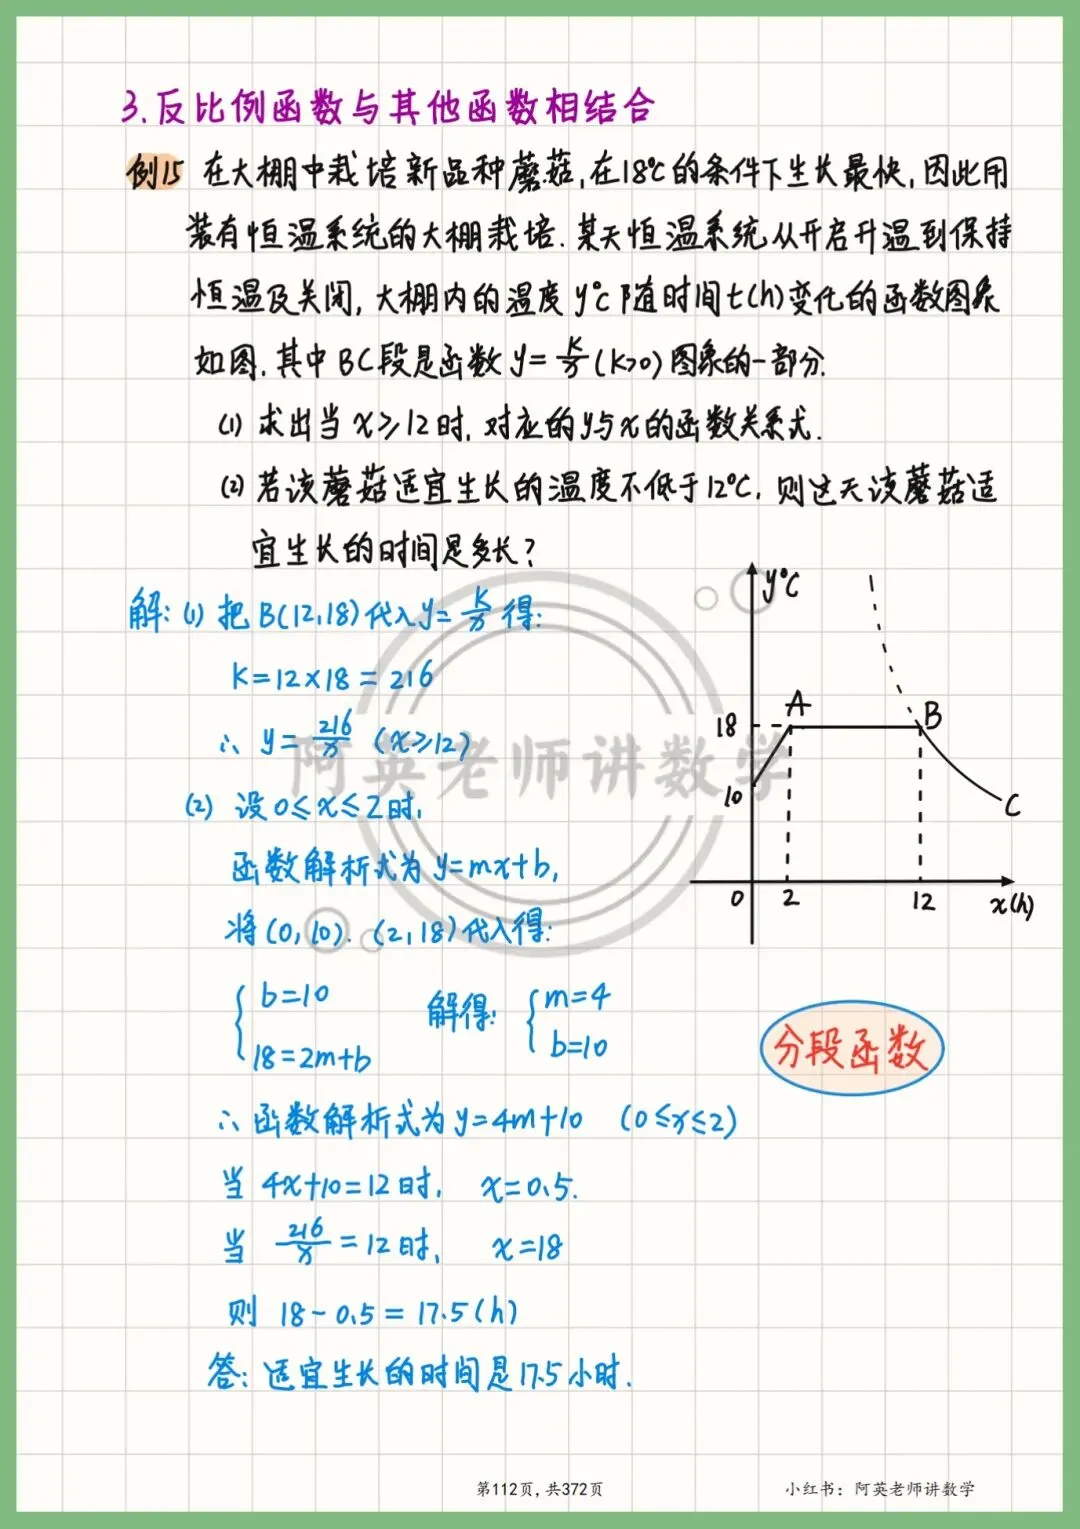 3.反比例函数与其他函数相结合
例15 在大棚中栽培新品种蘑菇,在18℃的条件下生长最快,因此用
装有恒温系统的大棚栽培.某天恒温系统从开启升温到保持
恒温及关闭,大棚内的温度y℃随时间t(h)变化的函数图象
如图.其中BC段是函数y=k/x(k>0)图象的一部分.
(1) 求出当x≥12时,对应的y与x的函数关系式.
(2) 若该蘑菇适宜生长的温度不低于12℃,则这天该蘑菇适
宜生长的时间是多长?
解:(1) 把B(12,18)代入y=k/x得:
K=12×18=216
∴ y=216/x (x≥12)
(2) 设0≤x≤2时,
函数解析式为y=mx+b,
将(0,10).(2,18)代入得:
{ b=10 解得: { m=4
18=2m+b b=10
∴函数解析式为y=4m+10 (0≤x≤2)
当 4x+10=12时, x=0.5.
当 216/x=12时, x=18
则 18-0.5=17.5(h)
答:适宜生长的时间是17.5小时.
y℃
A
18
B
10
C
0 2 12 x(h)
分段函数
阿英老师讲数学
第112页,共372页
小红书:阿英老师讲数学